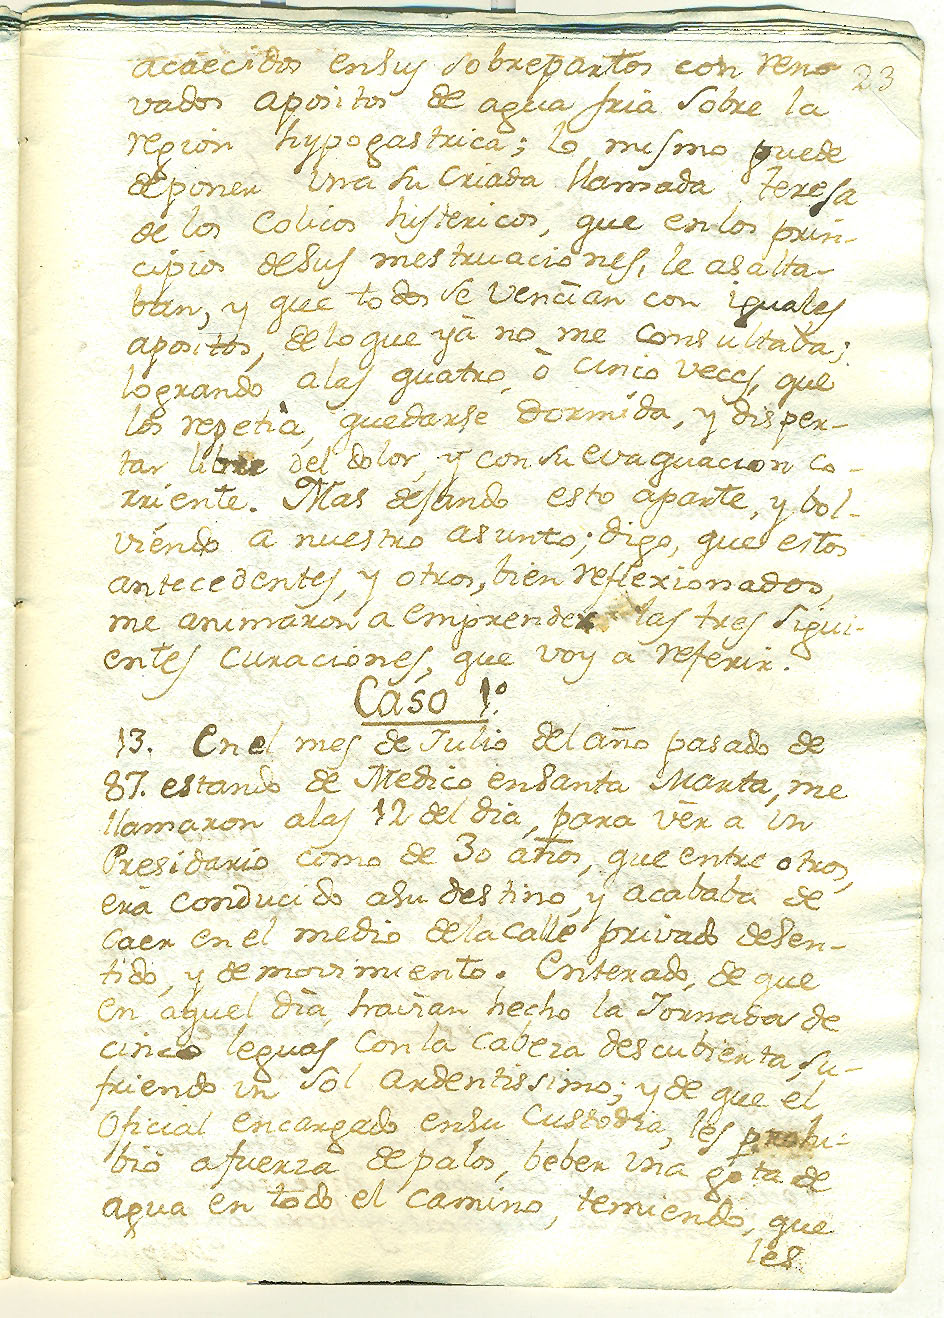 23
acaecidos ensus sobrepartos con reno
vados apositos de agua fria sobre la
region hypogastrica; lo mismo puede
deponer una su criada llamada Teresa
de los Colicos histericos, que enlos prin-
cipios desus mestruaciones, le asalta-
ban, y que todos se vencian con iguales
apositos, delo que yà no me consultaba;
logrando alas quatro, ò cinco veces, que
los repetia, quedarse dormida, y disper-
tar libre del dolor, y con su evaquacion co-
rriente. Mas dejando esto aparte, y bol-
viendo a nuestro asunto; digo, que estos
antecedentes, y otros, bien reflexionados,
me animaron a emprender las tres sigui-
entes curaciones, que voy a referir.
Caso 1º.
13. En el mes de Julio del año pasado de
87. estando de Medico ensanta Marta, me
llamaron alas 12 del dia, para vèr a un
Presidario como de 30 años, que entre otros,
era conducido asu destino, y acababa de
Caer en el medio dela calle privado desen-
tido, y de movimiento. Enterado, de que
en aquel dia, havian hecho la Jornada de
cinco leguas con la cabeza descubierta, su-
friendo un sol ardentissimo; y de que el
Oficial encargado ensu custodia, les prohi-
biò afuerza depalos, beber una gota de
agua en todo el camino, temiendo, que
les